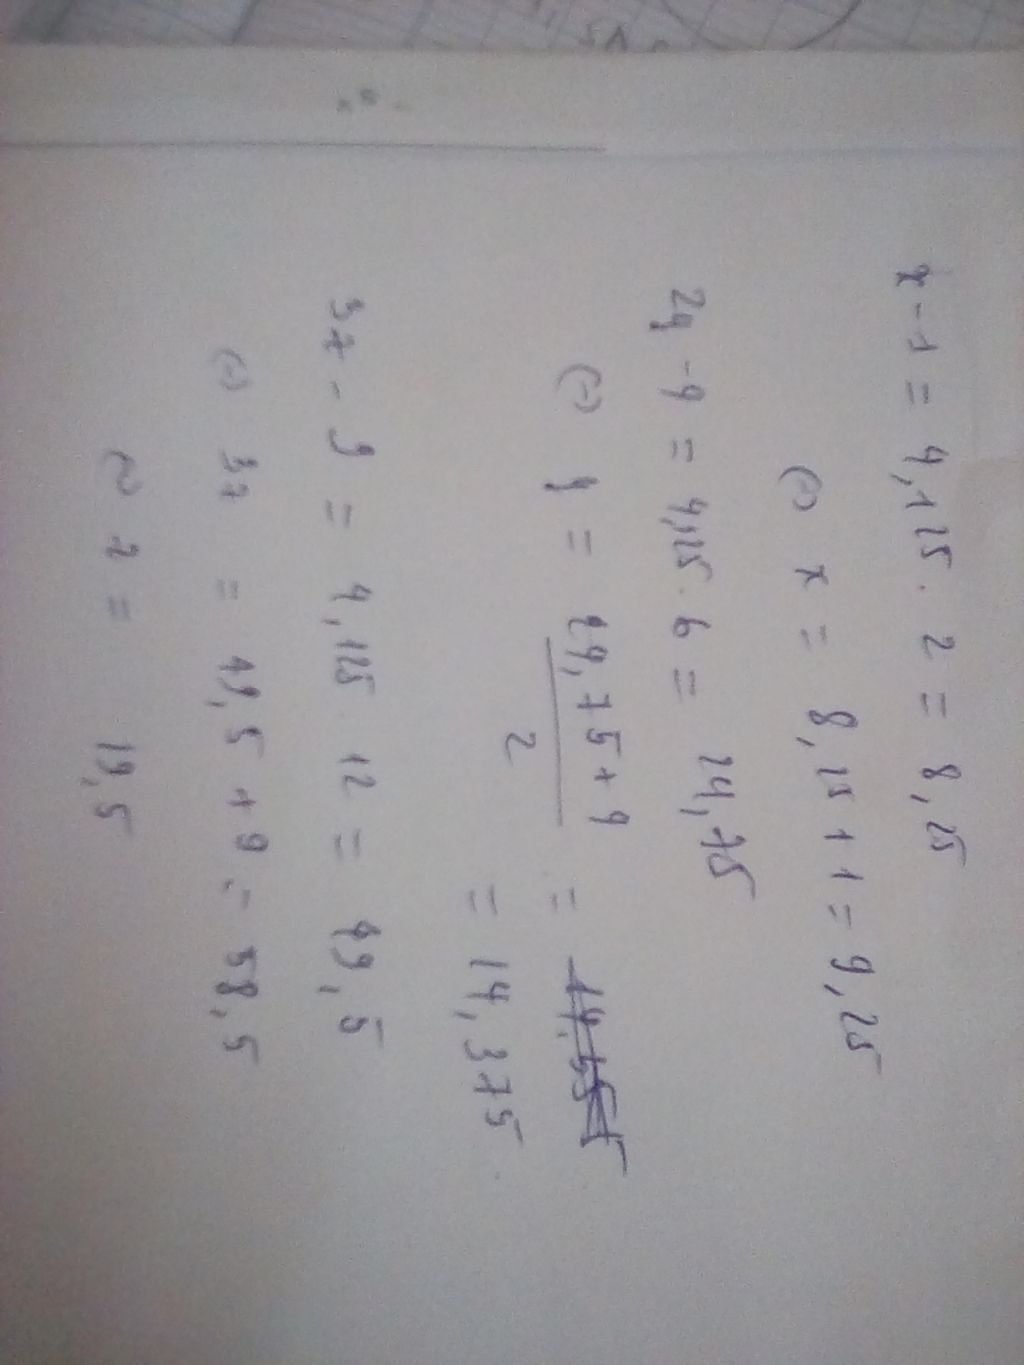 x - 1 = 4,125 . 2 = 8,25
(-) x = 8,25 + 1 = 9,25
2y - 4 = 4,125 . 6 = 24,75
(-) y = \frac{24,75 + 4}{2} =
= 14,375
3z - 9 = 4,125 . 12 = 49,5
(-) 3z = 49,5 + 9 = 58,5
(-) z = 19,5